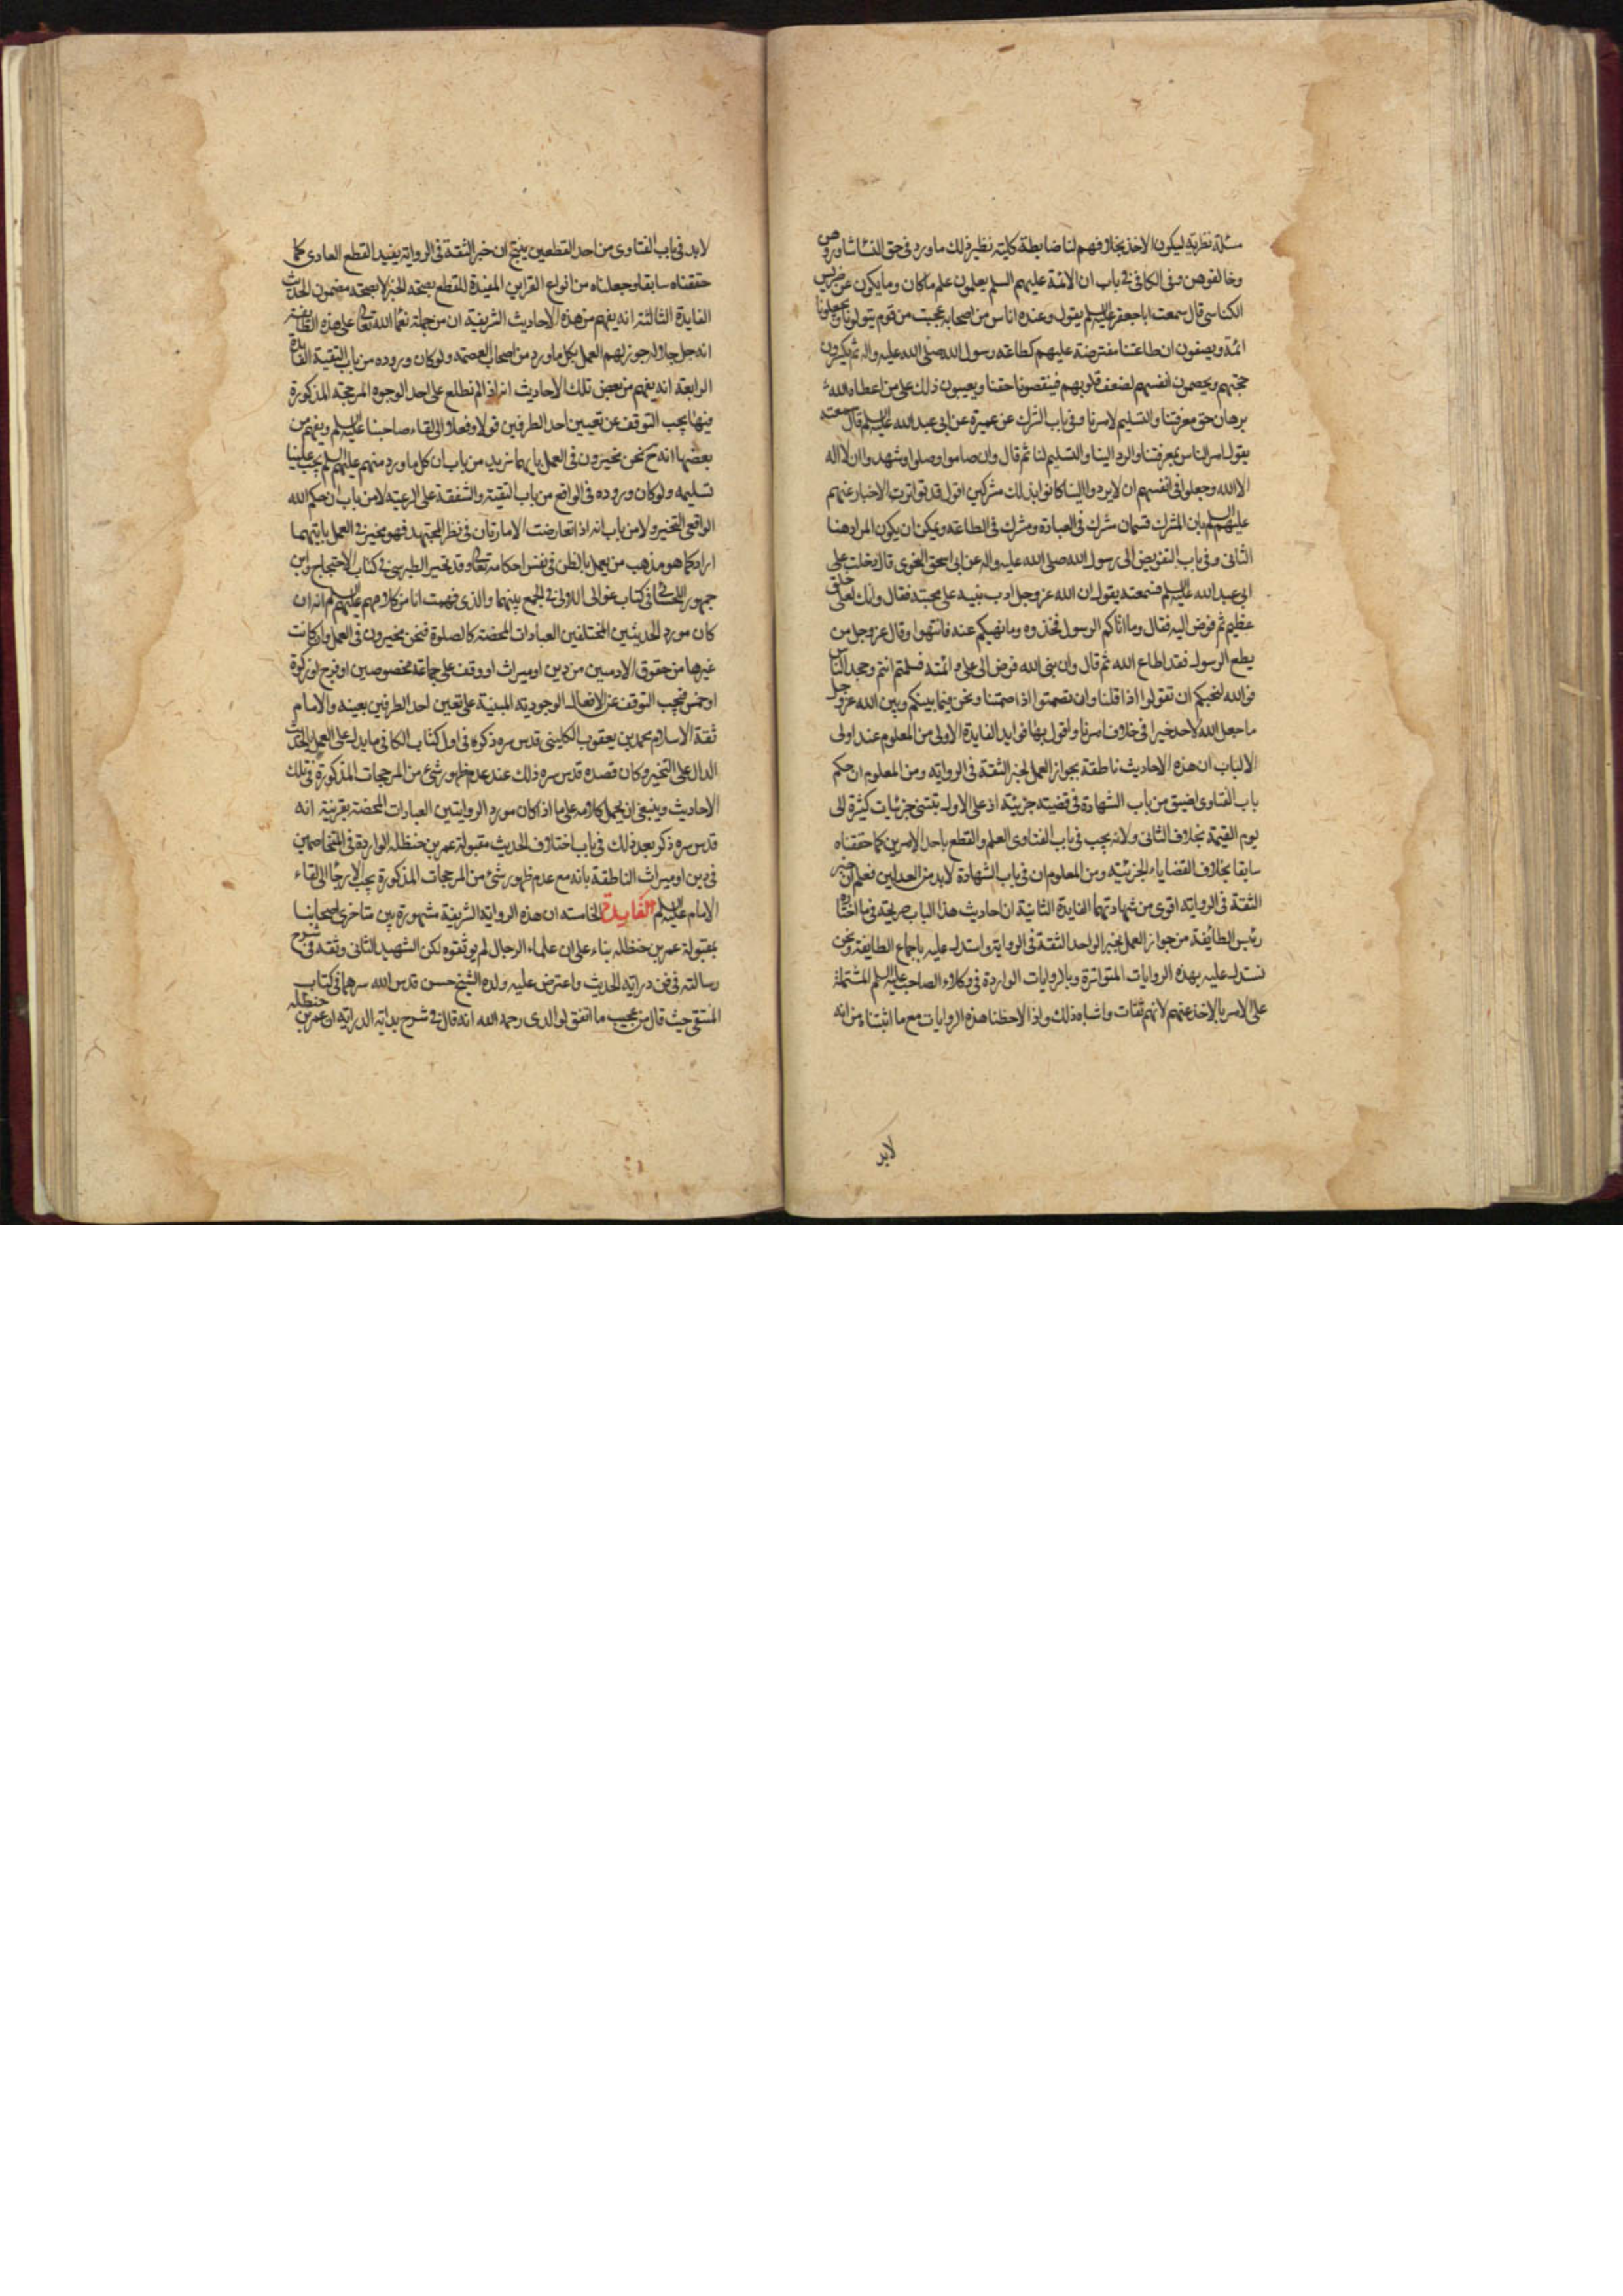 مسئلة نظرية ليكون الاخذ بخلافهم لنا ضابطة كلية نظير ذلك ما ورد في حق النساء شاوروهن
وخالفوهن وفي الكافي في باب ان الائمة عليهم السلم يعلمون علم ماكان وما يكون عن ضريس
الكناسي قال سمعت اباجعفر عليه السلم يقول وعنده اناس من اصحابه عجبت من قوم يتولونا ويجعلونا
ائمة ويصفون ان طاعتنا مفترضة عليهم كطاعة رسول الله صلى الله عليه واله ثم يكسرون
حجتهم ويخصمون انفسهم لضعف قلوبهم فينقصونا حقنا ويعيبون ذلك على من اعطاه الله
برهان حق معرفتنا والتسليم لامرنا وفي باب الشرك عن عميرة عن ابي عبد الله عليه السلم قال سمعته
يقول امر الناس بمعرفتنا والرد الينا والتسليم لنا ثم قال وان صاموا وصلوا وشهدوا ان لا اله
الا الله وجعلوا في انفسهم ان لا يردوا الينا كانوا بذلك مشركين اقول قد تواترت الاخبار عنهم
عليهم السلم بان الشرك قسمان شرك في العبادة وشرك في الطاعة ويمكن ان يكون المراد هنا
الثاني وفي باب التفويض الى رسول الله صلى الله عليه واله عن ابي اسحق النحوي قال دخلت على
ابي عبد الله عليه السلم فسمعته يقول ان الله عز وجل ادب نبيه على محبته فقال وانك لعلى خلق
عظيم ثم فوض اليه فقال وما اتاكم الرسول فخذوه وما نهيكم عنه فانتهوا وقال عز وجل من
يطع الرسول فقد اطاع الله ثم قال وان نبي الله فوض الى علي وائمته فسلمتم انتم وجحد الناس
فوالله لنحبكم ان تقولوا اذا قلنا وان تصمتوا اذا صمتنا ونحن فيما بينكم وبين الله عز وجل
ما جعل الله لاحد خيرا في خلاف امرنا واقول بها فوايد الفايدة الاولى من المعلوم عند اولى
الالباب ان هذه الاحاديث ناطقة بجواز العمل لخبر الثقة في الرواية ومن المعلوم ان حكم
باب الفتاوى اضيق من باب الشهادة في قضية جزيئة اذ على الاول تبتني جزئيات كثيرة الى
يوم القيمة بخلاف الثاني ولانه يجب في باب الفتاوى العلم والقطع باحد الامرين كما حققناه
سابقا بخلاف القضاياء الجزئية ومن المعلوم ان في باب الشهادة لابد من العدلين فعلم ان خبر
الثقة في الرواية اقوى من شهادتهما الفايدة الثانية ان احاديث هذا الباب صريحة في ما اختاره
رئيس الطايفة من جواز العمل بخبر الواحد الثقة في الرواية واستدل عليه باجماع الطايفة ونحن
نستدل عليه بهذه الروايات المتواترة وبالروايات الواردة في وكلاء الصاحب عليه السلم المشتملة
على الامر بالاخذ عنهم لانهم ثقات واشباه ذلك واذا لاحظنا هذه الروايات مع ما اثبتناه من انه
لابد
لابد في باب الفتاوى من احد القطعين ينتج ان خبر الثقة في الرواية يفيد القطع العادى كما
حققناه سابقا وجعلناه من انواع القراين المفيدة للقطع بصحة الخبر لا بصحة مضمون الحديث
الفايدة الثالثة انه يفهم من هذه الاحاديث الشريفة ان من جملة نعماء الله تعالى على هذه الطايفة
انه جل جلاله جوز لهم العمل بكل ما ورد من اصحاب العصمة ولو كان وروده من باب التقية الفايدة
الرابعة انه يفهم من بعض تلك الاحاديث انه اذا لم نطلع على احد الوجوه المرجحة المذكورة
فيها يجب التوقف عن تعيين احد الطرفين قولا وفعلا الى لقاء صاحبنا عليه السلم ويفهم من
بعضها انه ح نحن مخيرون في العمل بايهما نريد من باب ان كل ما ورد منهم عليهم السلم يجب علينا
تسليمه ولو كان وروده في الواقع من باب التقية والشفقة على الرعية لا من باب ان حكم الله
الواقعي التخير ولا من باب انه اذا تعارضت الامارتان في نظر المجتهد فهو مخير في العمل بايتهما
اراد كما هو مذهب من يعمل بالظن في نفس احكامه تعالى وقد تحير الطبرسي في كتاب الاحتجاج وابن
جمهور اللحسائي في كتاب غوالى اللالي في الجمع بينهما والذى فهمت انا من كلامهم عليهم السلم انه ان
كان مورد الحديثين المختلفين العبادات المحضة كالصلوة فنحن مخيرون في العمل وان كانت
غيرها من حقوق الادميين من دين او ميراث او وقف على جماعة مخصوصين او فرج او زكوة
او خمس فيجب التوقف عن الافعال الوجودية المبنية على تعيين احد الطرفين بعينه والامام
ثقة الاسلام محمد بن يعقوب الكليني قدس سره ذكره في اول كتاب الكافي ما يدل على العمل بالحديث
الدال على التخير وكان قصده قدس سره ذلك عند عدم ظهور شئ من المرجحات المذكورة في تلك
الاحاديث وينبغي ان يحمل كلامه على ما اذا كان مورد الروايتين العبادات المحضة بقرينة انه
قدس سره ذكر بعد ذلك في باب اختلاف الحديث مقبولة عمر بن حنظله الواردة في المتخاصمين
في دين او ميراث الناطقة بانه مع عدم ظهور شئ من المرجحات المذكورة يجب الارجاء الى لقاء
الامام عليه السلم الفايدة الخامسة ان هذه الرواية الشريفة مشهورة بين متاخرى اصحابنا
بمقبولة عمر بن حنظله بناء على ان علماء الرجال لم يوثقوه لكن الشهيد الثاني وثقه في شرح
رسالته في فن دراية الحديث واعترض عليه ولده الشيخ حسن قدس الله سرهما في كتاب
المنتقى حيث قال من عجيب ما اتفق لوالدى رحمه الله انه قال في شرح بداية الدراية ان عمر بن حنظله